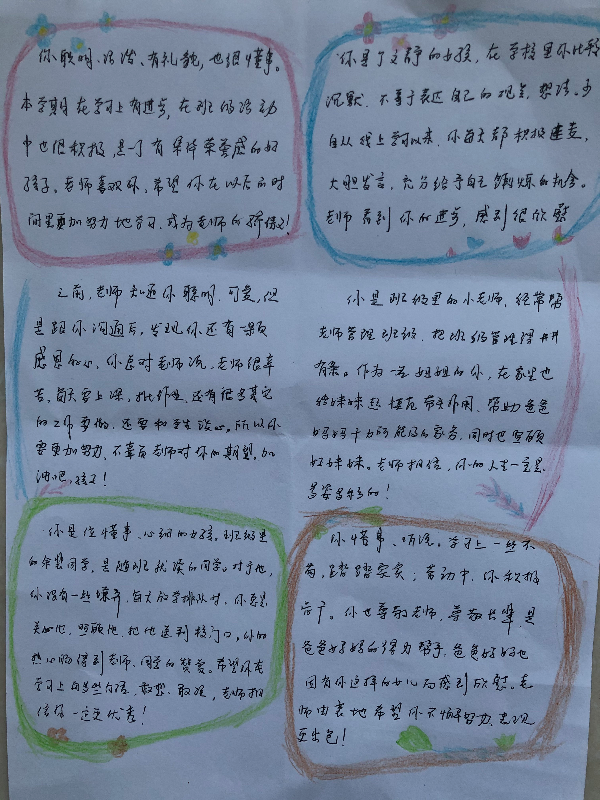 你聪明、活泼、有礼貌，也很懂事。
本学期在学习上有进步，在班级活动
中也很积极，是一个有集体荣誉感的好
孩子。老师喜欢你，希望你在以后的时
间里更加努力地学习，成为老师的骄傲！
你是个文静的女孩，在学校里你比较
沉默，不善于表达自己的观点、想法。
自从线上学习以来，你每天都积极连麦，
大胆发言，充分给予自己锻炼的机会。
老师看到你的进步，感到很欣慰
之前，老师知道你聪明、可爱，但
是跟你沟通后，发现你还有一颗
感恩的心，你总对老师说，老师很辛
苦，每天要上课，批作业，还有很多其它
的工作要做，还要和学生谈心。所以你
要更加努力，不辜负老师对你的期望，加
油吧，孩子！
你是班级里的小老师，经常帮
老师管理班级，把班级管理得井井
有条。作为一名姐姐的你，在家里也
给妹妹起模范带头作用，帮助爸爸
妈妈干力所能及的家务，同时也照顾
好妹妹。老师相信，你的人生一定是
多姿多彩的！
你是位懂事、心细的女孩。班级里
的余慧同学，是随班就读的同学。对于他，
你没有一些嫌弃，每天放学排队时，你总是
关心他，照顾他，把他送到校门口，你的
热心肠得到老师、同学的赞爱。希望你在
学习上，敢想、敢难，老师相
信你一定更优秀！
你懂事、听话。学习上一丝不
苟，踏踏实实；劳动中，你积极
肯干。你也尊敬老师，尊敬长辈，是
爸爸妈妈的得力帮手，爸爸妈妈也
因有你这样的女儿而感到欣慰。老
师由衷地希望你不懈努力，表现
更出色！